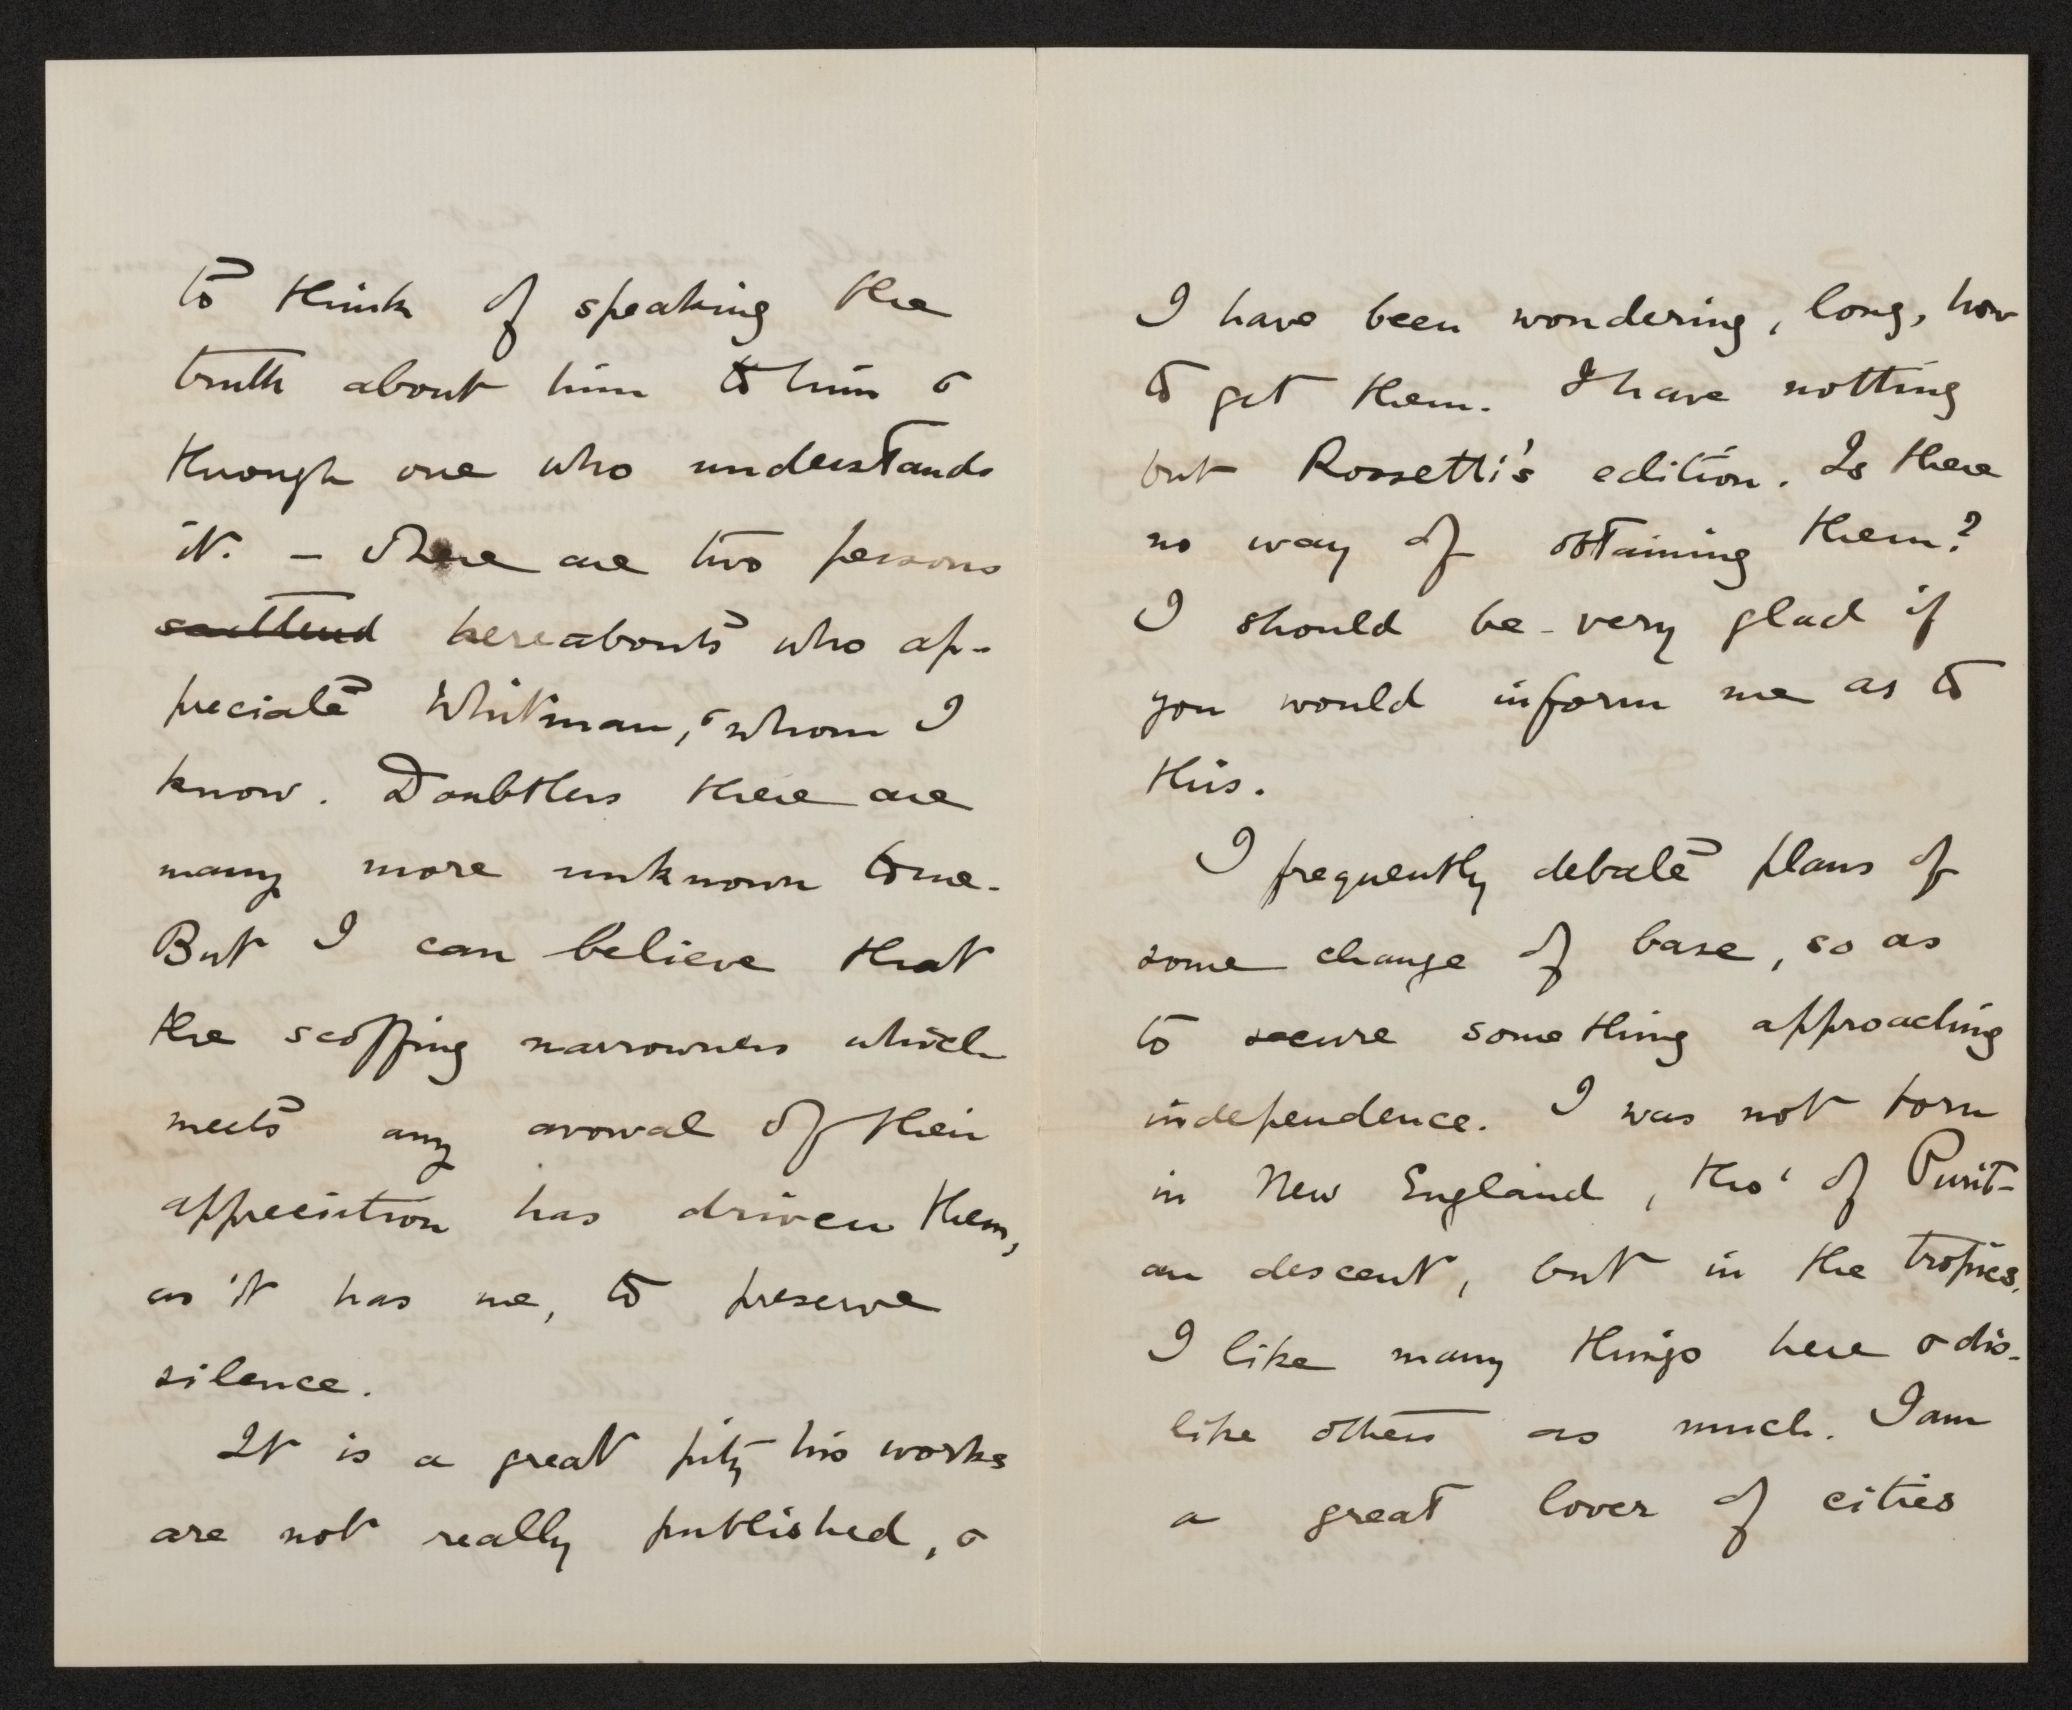 to think of speaking the
truth about him to him &
through one who understands
it. – There are two persons
scattered hereabouts who ap-
preciate Whitman, & whom I
know. Doubtless there are
many more unknown to me.
But I can believe that
the scoffing narrowness which
meets any avowal of their
appreciation has driven them,
as it has me, to preserve
silence.
It is a great pity his works
are not really published, &
I have been wondering, long, how
to get them. I have nothing
but Rossetti's edition. Is there
no way of obtaining them?
I should be very glad if
you would inform me as to
this.
I frequently debate plans of
some change of base, so as
to secure something approaching
independence. I was not born
in New England, tho' of Purit-
an descent, but in the tropics.
I like many things here & dis-
like others as much. I am
a great lover of cities